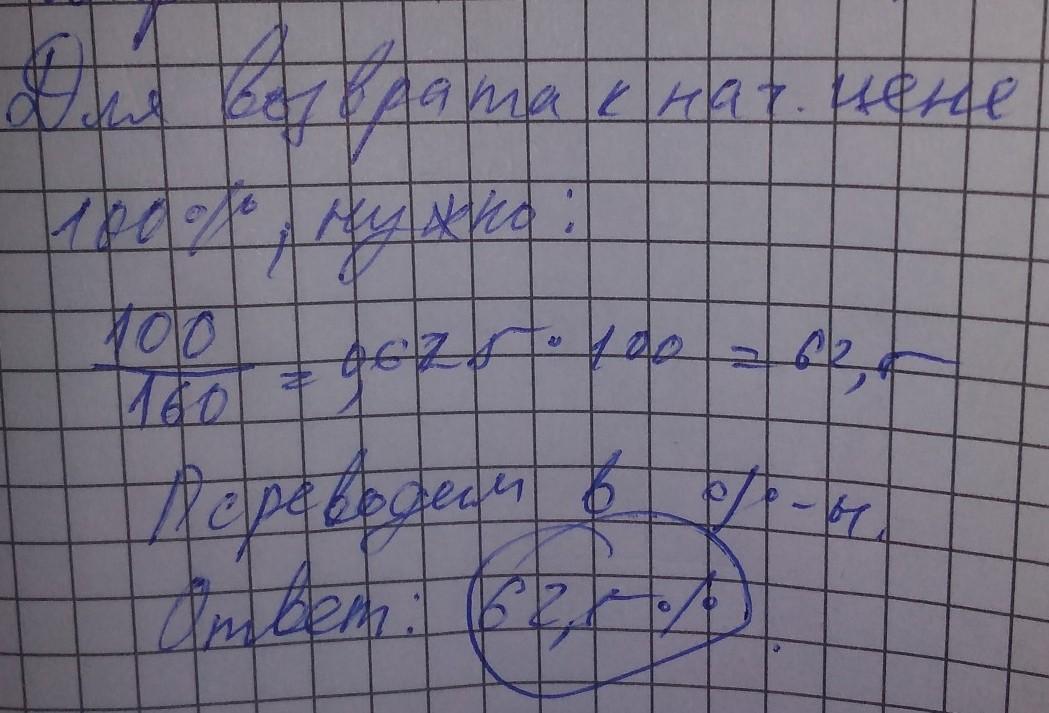 Для возврата к нач. цене
100%, нужно:
100/160 = 0,625 · 100 = 62,5
Переводим в %-ы.
Ответ: 62,5%.